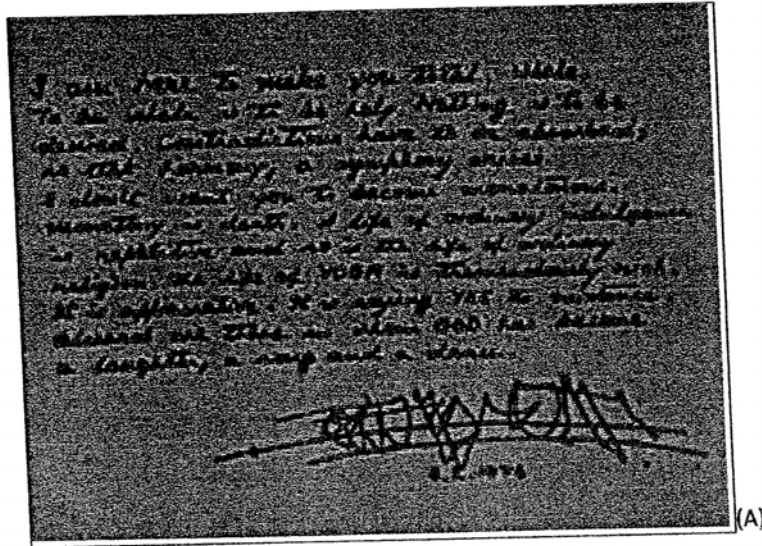 I am here to make you total, whole.
To be whole is to be holy. Nothing is to be
denied, contradictions have to be absorbed,
so that harmony, a symphony arises.
I don't want you to become monotonous.
monotony is death. A life of ordinary indulgence
is repetitive and so is the life of ordinary
religion. The life of YOGA is tremendously rich,
It is affirmative. It is saying YES to existence.
blessed are those in whom GOD has become
a laughter, a song and a dance.
(A)